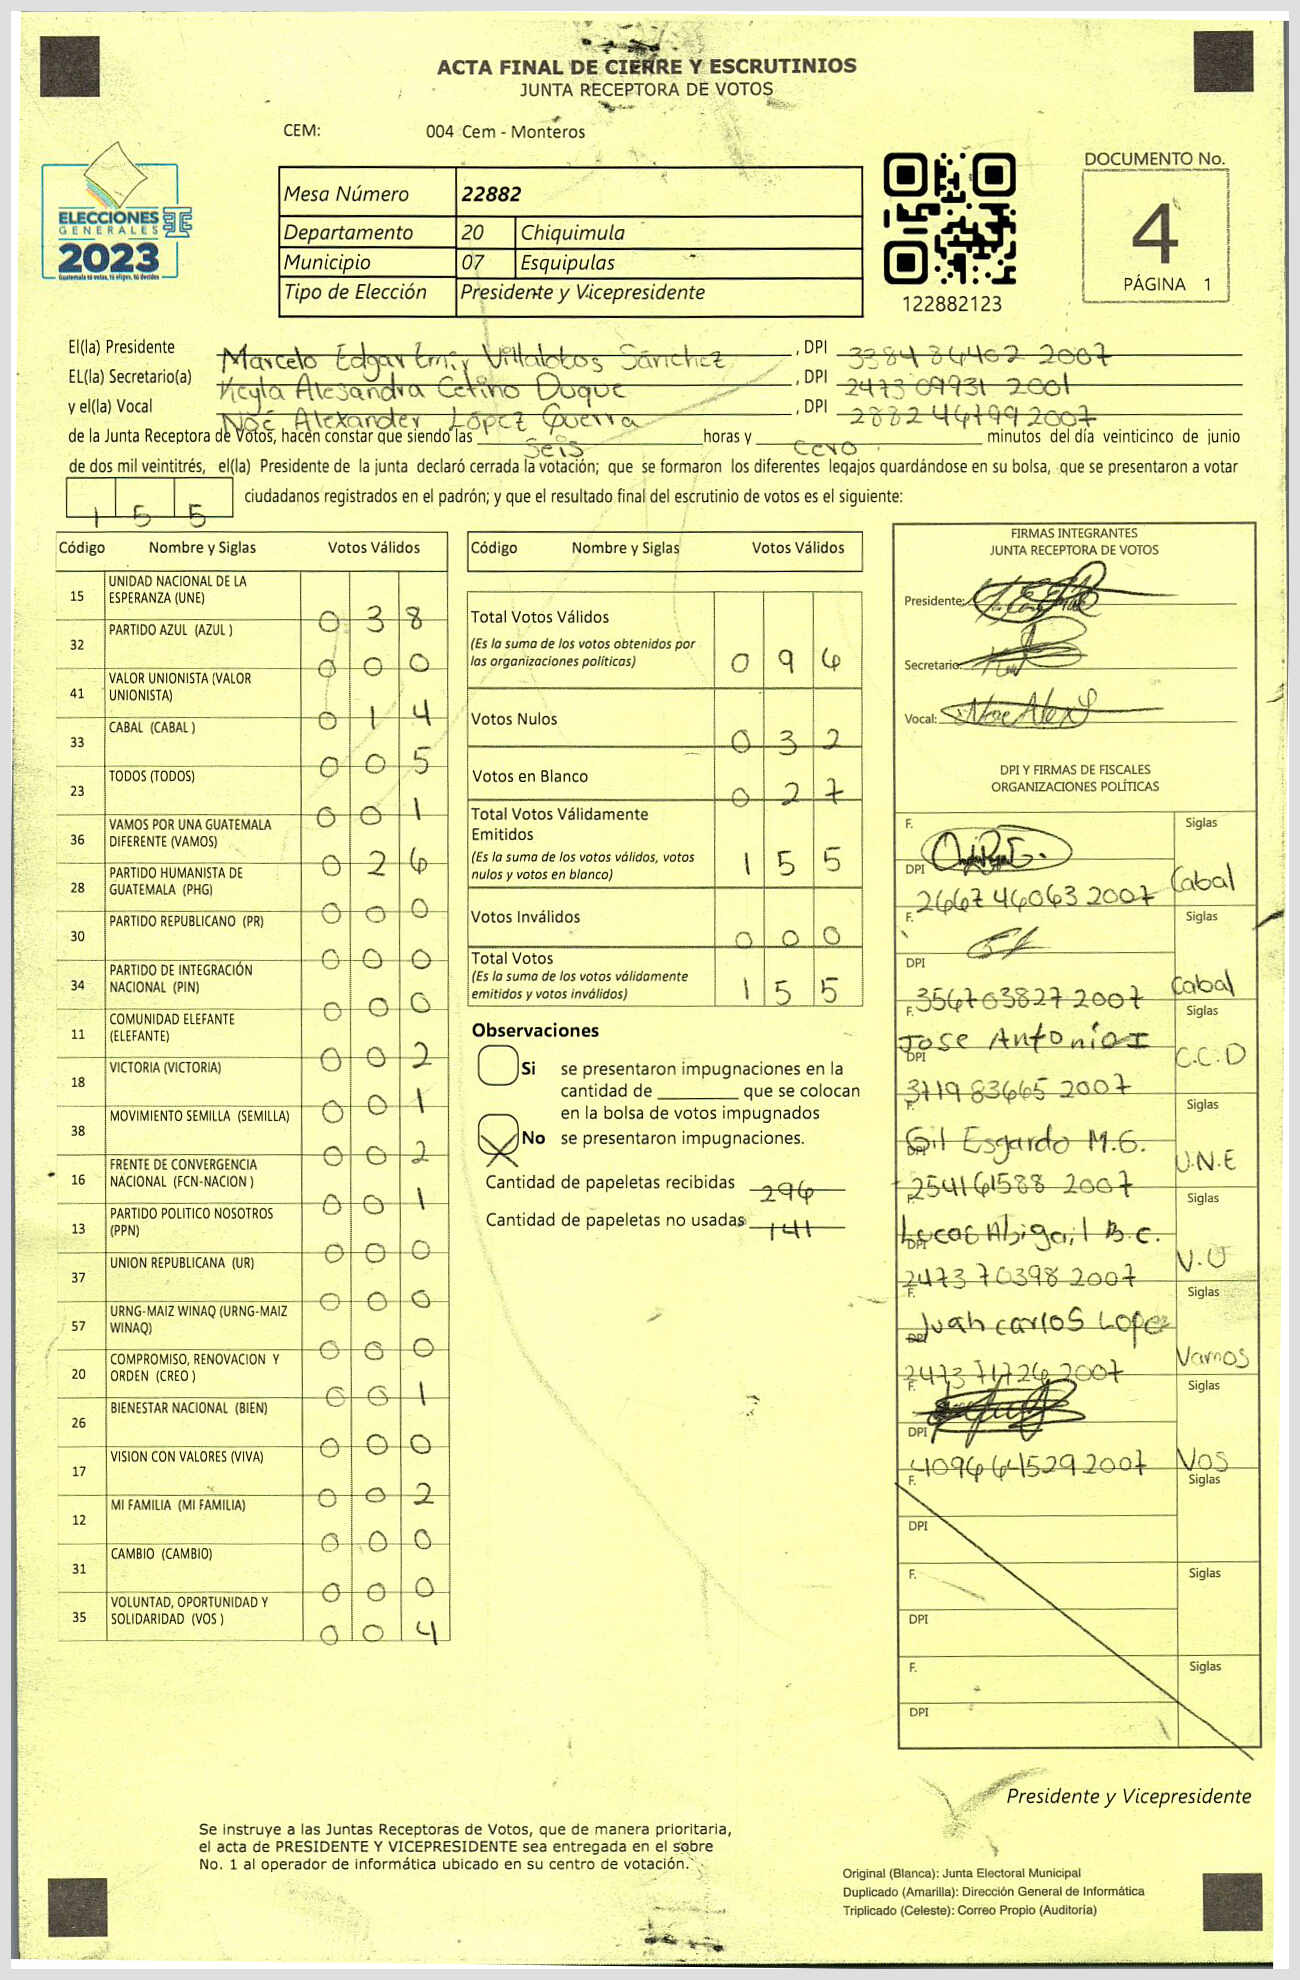 ACTA FINAL DE CIERRE Y ESCRUTINIOS
JUNTA RECEPTORA DE VOTOS
CEM: 004 Cem - Monteros
ELECCIONES
GENERALES
2023
Guatemala tú votas, tú eliges, tú decides
Mesa Número 22882
Departamento 20 Chiquimula
Municipio 07 Esquipulas
Tipo de Elección Presidente y Vicepresidente
122882123
DOCUMENTO No.
4
PÁGINA 1
El(la) Presidente Marcelo Edgar Emir Villalobos Sánchez, DPI 3384 84402 2007
EL(la) Secretario(a) Keyla Alesandra Cetino Duque, DPI 2473 09931 2001
y el(la) Vocal Noé Alexander López Guerra, DPI 2882 46799 2007
de la Junta Receptora de Votos, hacen constar que siendo las seis horas y cero minutos del día veinticinco de junio
de dos mil veintitrés, el(la) Presidente de la junta declaró cerrada la votación; que se formaron los diferentes legajos quardándose en su bolsa, que se presentaron a votar
1 5 5 ciudadanos registrados en el padrón; y que el resultado final del escrutinio de votos es el siguiente:
Código Nombre y Siglas Votos Válidos
15 UNIDAD NACIONAL DE LA ESPERANZA (UNE) 0 3 8
32 PARTIDO AZUL (AZUL ) 0 0 0
41 VALOR UNIONISTA (VALOR UNIONISTA) 0 1 4
33 CABAL (CABAL ) 0 0 5
23 TODOS (TODOS) 0 0 1
36 VAMOS POR UNA GUATEMALA DIFERENTE (VAMOS) 0 2 6
28 PARTIDO HUMANISTA DE GUATEMALA (PHG) 0 0 0
30 PARTIDO REPUBLICANO (PR) 0 0 0
34 PARTIDO DE INTEGRACIÓN NACIONAL (PIN) 0 0 0
11 COMUNIDAD ELEFANTE (ELEFANTE) 0 0 2
18 VICTORIA (VICTORIA) 0 0 1
38 MOVIMIENTO SEMILLA (SEMILLA) 0 0 2
16 FRENTE DE CONVERGENCIA NACIONAL (FCN-NACION ) 0 0 1
13 PARTIDO POLITICO NOSOTROS (PPN) 0 0 0
37 UNION REPUBLICANA (UR) 0 0 0
57 URNG-MAIZ WINAQ (URNG-MAIZ WINAQ) 0 0 0
20 COMPROMISO, RENOVACION Y ORDEN (CREO ) 0 0 1
26 BIENESTAR NACIONAL (BIEN) 0 0 0
17 VISION CON VALORES (VIVA) 0 0 2
12 MI FAMILIA (MI FAMILIA) 0 0 0
31 CAMBIO (CAMBIO) 0 0 0
35 VOLUNTAD, OPORTUNIDAD Y SOLIDARIDAD (VOS ) 0 0 4
Código Nombre y Siglas Votos Válidos
Total Votos Válidos 0 9 6
(Es la suma de los votos obtenidos por
las organizaciones políticas)
Votos Nulos 0 3 2
Votos en Blanco 0 2 7
Total Votos Válidamente
Emitidos 1 5 5
(Es la suma de los votos válidos, votos
nulos y votos en blanco)
Votos Inválidos 0 0 0
Total Votos 1 5 5
(Es la suma de los votos válidamente
emitidos y votos inválidos)
Observaciones
Si se presentaron impugnaciones en la
cantidad de ________ que se colocan
en la bolsa de votos impugnados
No se presentaron impugnaciones.
Cantidad de papeletas recibidas 296
Cantidad de papeletas no usadas 141
FIRMAS INTEGRANTES
JUNTA RECEPTORA DE VOTOS
Presidente:
Secretario:
Vocal:
DPI Y FIRMAS DE FISCALES
ORGANIZACIONES POLÍTICAS
F. Siglas
DPI 2667 46063 2007 Cabal
F. Siglas
DPI 3567 03827 2007 Cabal
F. Jose Antonio Siglas
DPI 3719 83665 2007 C.C.D
F. Gil Esgardo M.G. Siglas
DPI 2541 61588 2007 U.N.E
F. Lucas Abigail B.C. Siglas
DPI 2473 70398 2007 V.U
F. Juan carlos Lopez Siglas
DPI 2473 71726 2007 Vamos
F. Siglas
DPI 4096 64529 2007 VOS
F. Siglas
DPI
F. Siglas
DPI
F. Siglas
DPI
Presidente y Vicepresidente
Se instruye a las Juntas Receptoras de Votos, que de manera prioritaria,
el acta de PRESIDENTE Y VICEPRESIDENTE sea entregada en el sobre
No. 1 al operador de informática ubicado en su centro de votación.
Original (Blanca): Junta Electoral Municipal
Duplicado (Amarilla): Dirección General de Informática
Triplicado (Celeste): Correo Propio (Auditoría)